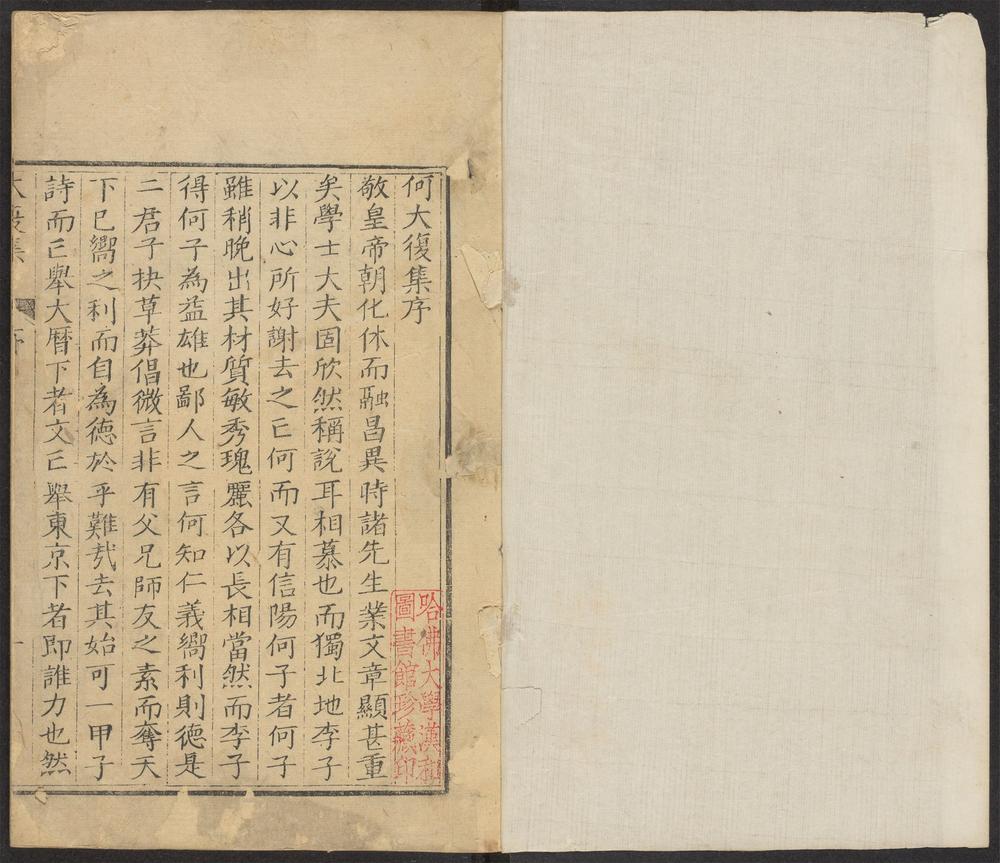 何大復集序
敬皇帝朝化休而融昌異時諸先生業文章顯甚重
矣學士大夫固欣然稱說耳相慕也而獨北地李子
以非心所好謝去之亡何而又有信陽何子者何子
雖稍晚出其材質敏秀瑰麗各以長相當然而李子
得何子為益雄也鄙人之言何知仁義嚮利則德是
二君子抉草莽倡微言非有父兄師友之素而奪天
下已嚮之利而自為德於乎難哉去其始可一甲子
詩而亡舉大曆下者文亡舉東京下者即誰力也然
大復集
序
一
哈佛大學漢和
圖書館珍藏印